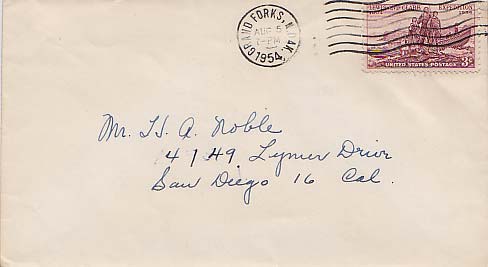 GRAND FORKS, N. DAK.
AUG 5
PM
1954
LEWIS AND CLARK EXPEDITION
1804 1954
UNITED STATES POSTAGE 3¢
Mr. H. A. Noble
4149 Lymer Drive
San Diego 16 Cal.